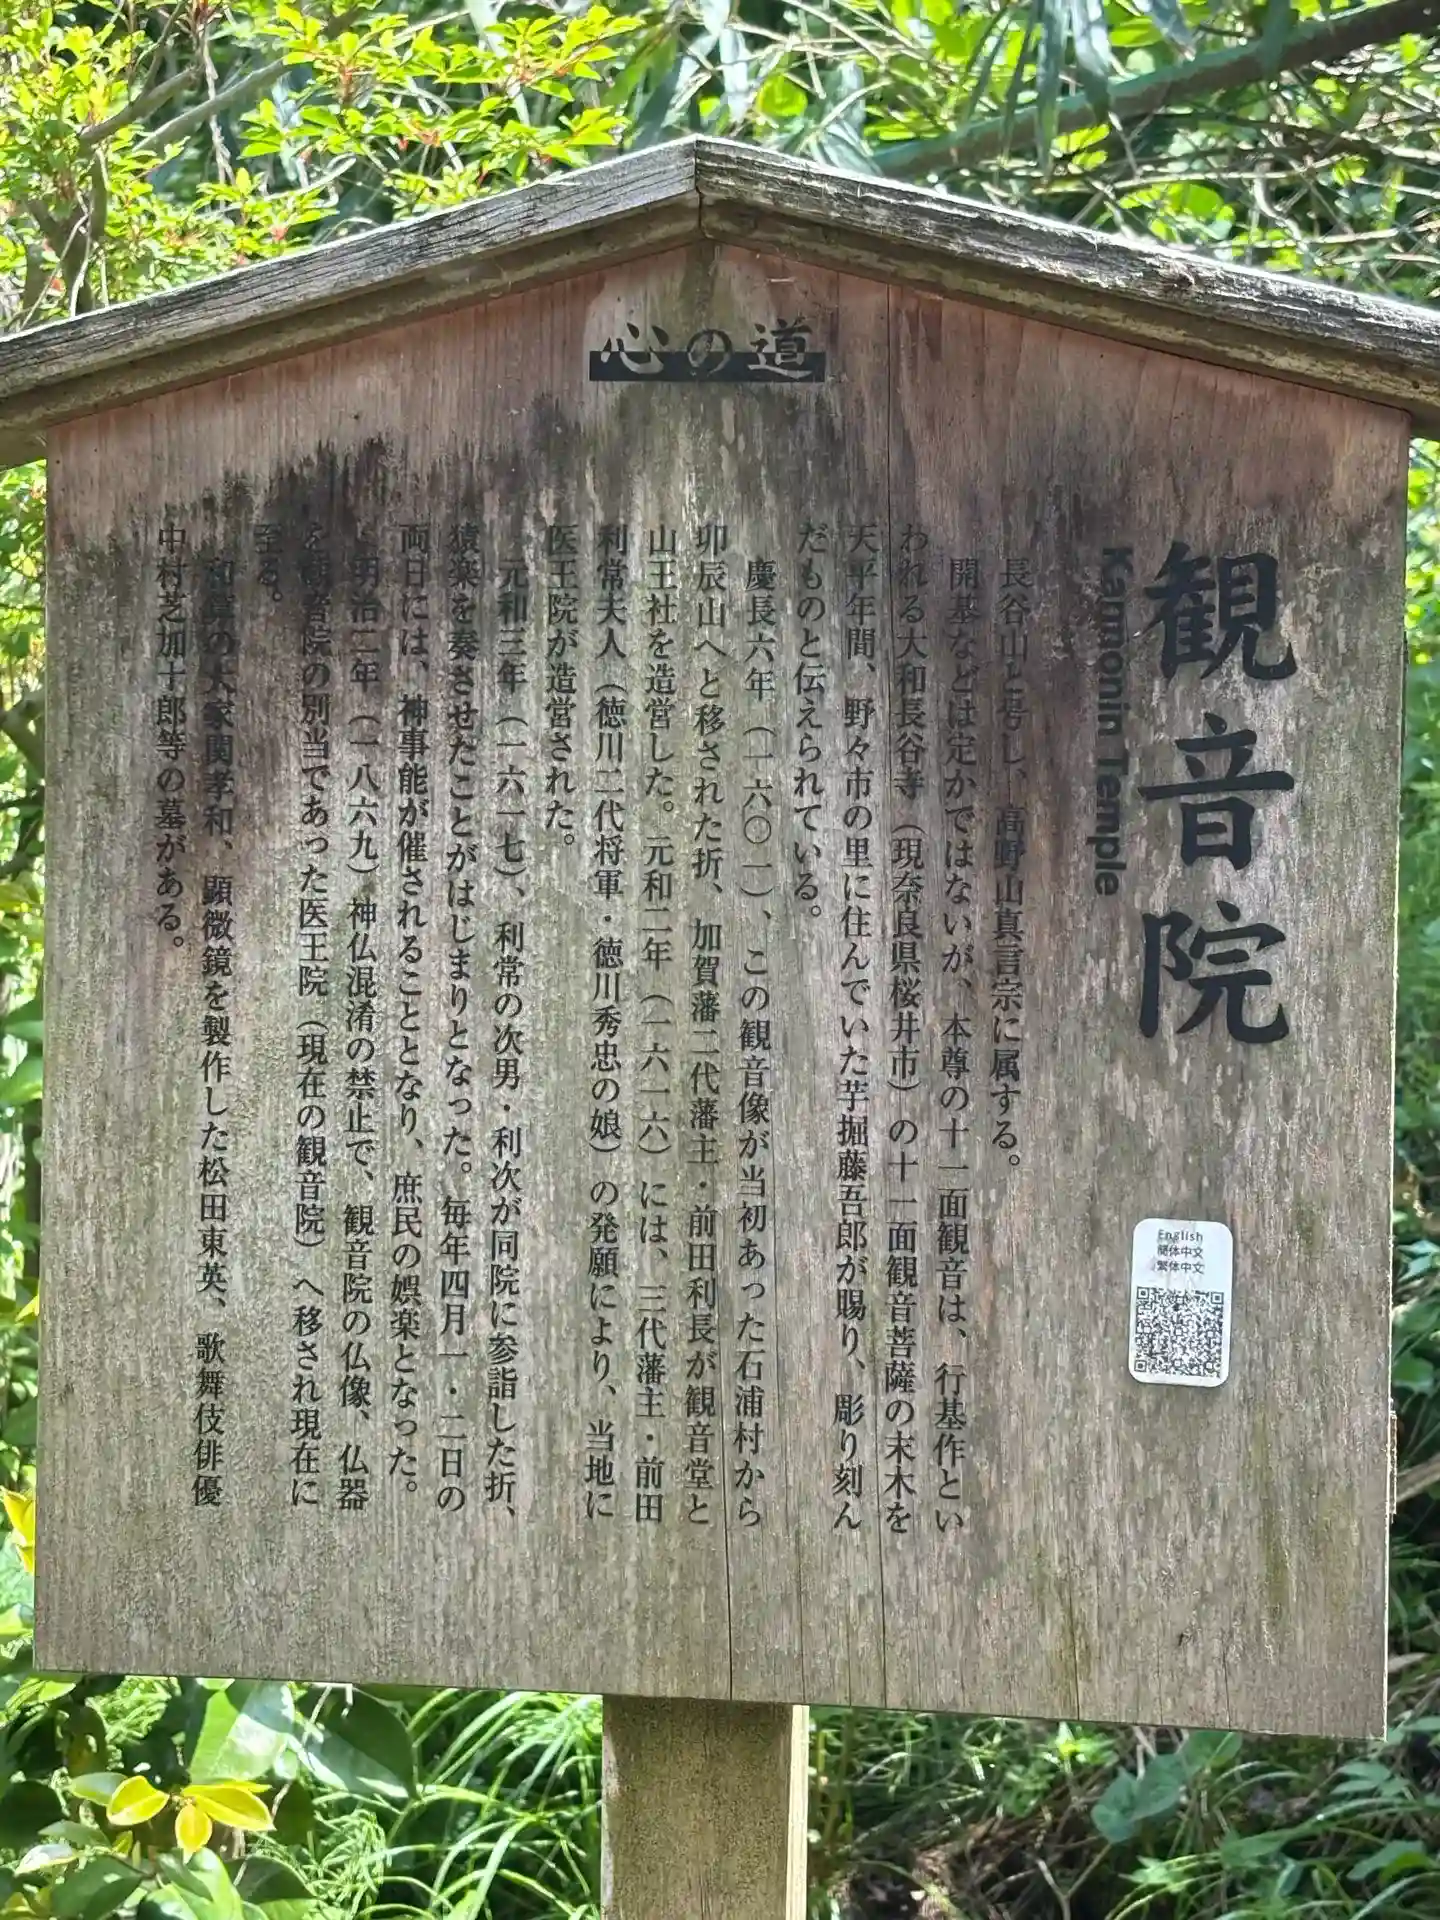 心の道
観音院
Kannonin Temple
長谷山と号し、高野山真言宗に属する。
開基などは定かではないが、本尊の十一面観音は、行基作とい
われる大和長谷寺（現奈良県桜井市）の十一面観音菩薩の末木を
天平年間、野々市の里に住んでいた芋掘藤吾郎が賜り、彫り刻ん
だものと伝えられている。
慶長六年（一六〇一）、この観音像が当初あった石浦村から
卯辰山へと移された折、加賀藩二代藩主・前田利長が観音堂と
山王社を造営した。元和二年（一六一六）には、三代藩主・前田
利常夫人（徳川二代将軍・徳川秀忠の娘）の発願により、当地に
医王院が造営された。
元和三年（一六一七）、利常の次男・利次が同院に参詣した折、
猿楽を奏させたことがはじまりとなった。毎年四月一・二日の
両日には、神事能が催されることとなり、庶民の娯楽となった。
明治二年（一八六九）神仏混淆の禁止で、観音院の仏像、仏器
を観音院の別当であった医王院（現在の観音院）へ移され現在に
至る。
和算の大家関孝和、顕微鏡を製作した松田東英、歌舞伎俳優
中村芝加十郎等の墓がある。
English
簡体中文
繁体中文